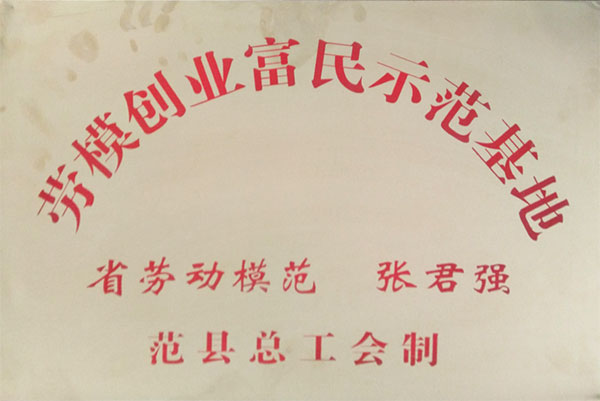 劳模创业富民示范基地
省劳动模范 张君强
范县总工会制